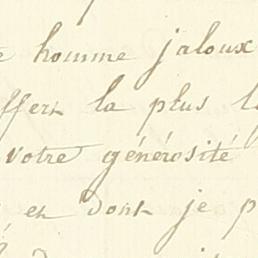 homme jaloux
la plus
votre générosité
et dont je